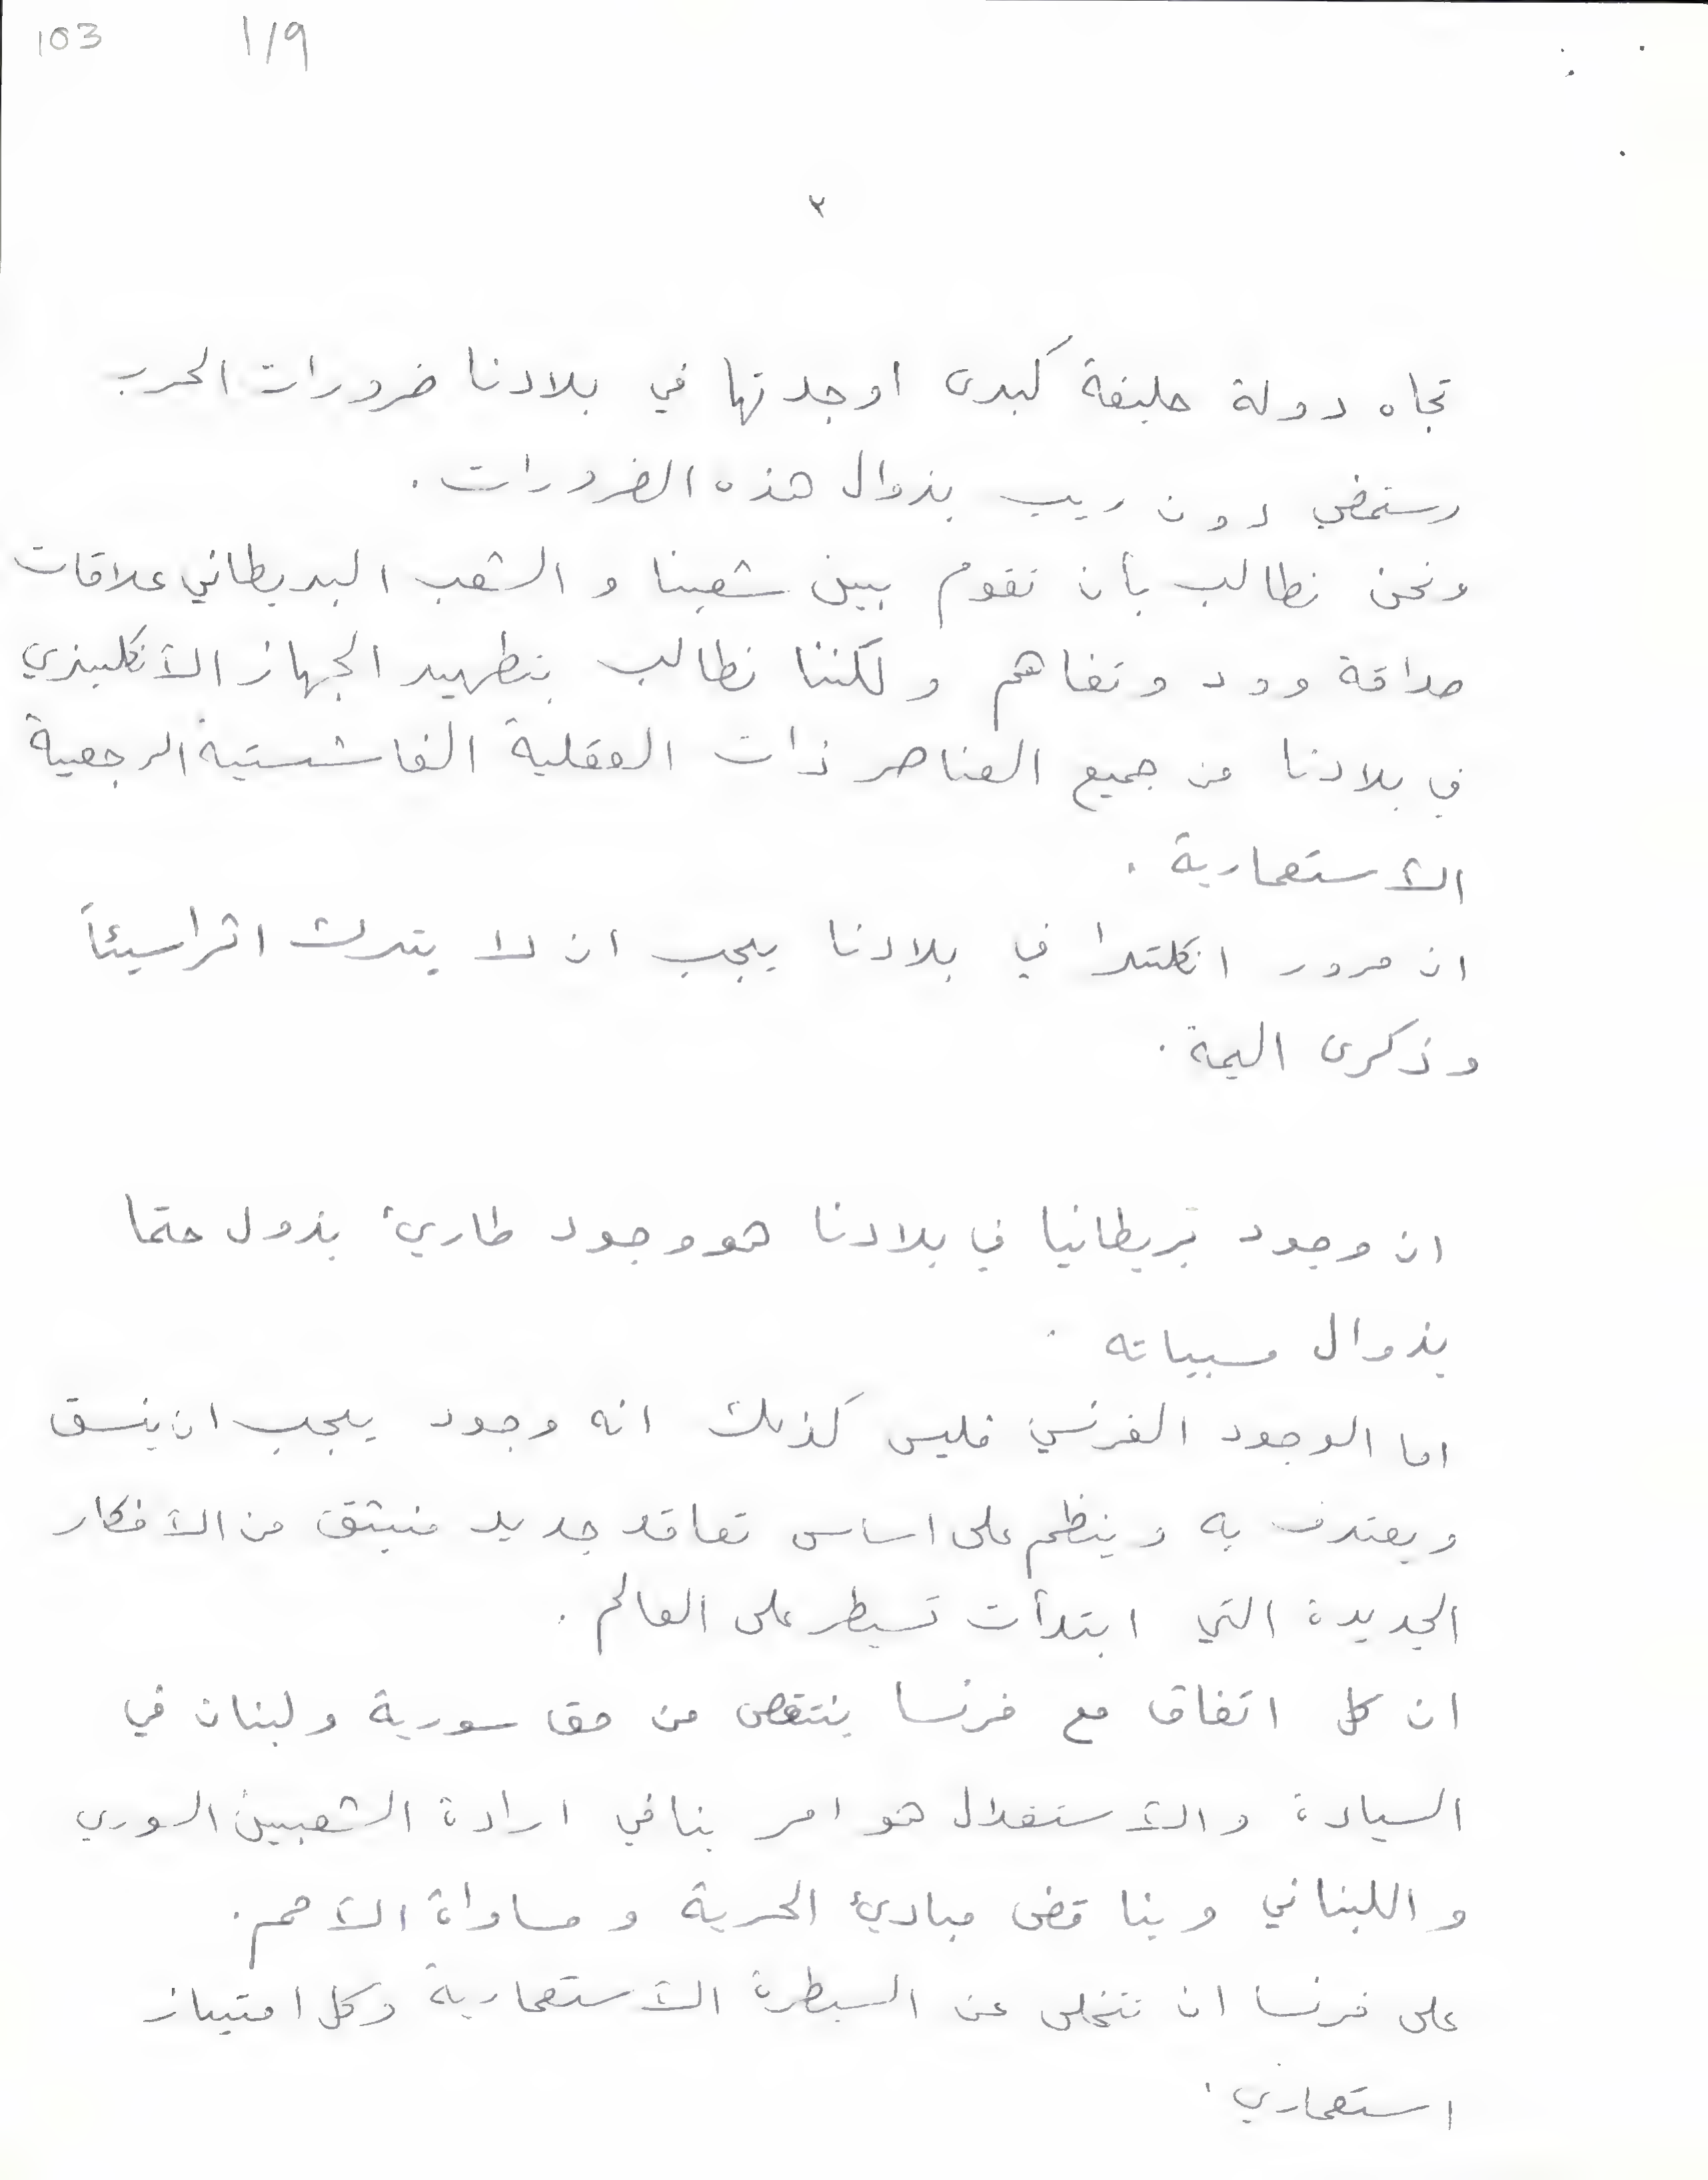 103 1/9
٢
تجاه دولة حليفة كبرى اوجدتها في بلادنا ضرورات الحرب
وستمضي دون ريب بزوال هذه الضرورات .
ونحن نطالب بأن تقوم بين شعبنا و الشعب البريطاني علاقات
صداقة وود وتفاهم ولكننا نطالب بتطهير الجهاز الانكليزي
في بلادنا من جميع العناصر ذات العقلية الفاشستية الرجعية
الاستعمارية .
ان مرور انكلترا في بلادنا يجب ان لا يترك اثرا سيئاً
وذكرى اليمة .
ان وجود بريطانيا في بلادنا هو وجود طاريء يزول حتما
بزوال مسبباته .
اما الوجود الفرنسي فليس كذلك انه وجود يجب ان ينسق
ويعترف به وينظم على اساس تعاقد جديد منبثق من الافكار
الجديدة التي ابتدأت تسيطر على العالم .
ان كل اتفاق مع فرنسا ينتقص من حق سورية ولبنان في
السيادة والاستقلال هو امر ينافي ارادة الشعبين السوري
واللبناني ويناقض مباديء الحرية ومساواة الامم .
على فرنسا ان تتخلى عن السيطرة الاستعمارية وكل امتياز
استعماري .